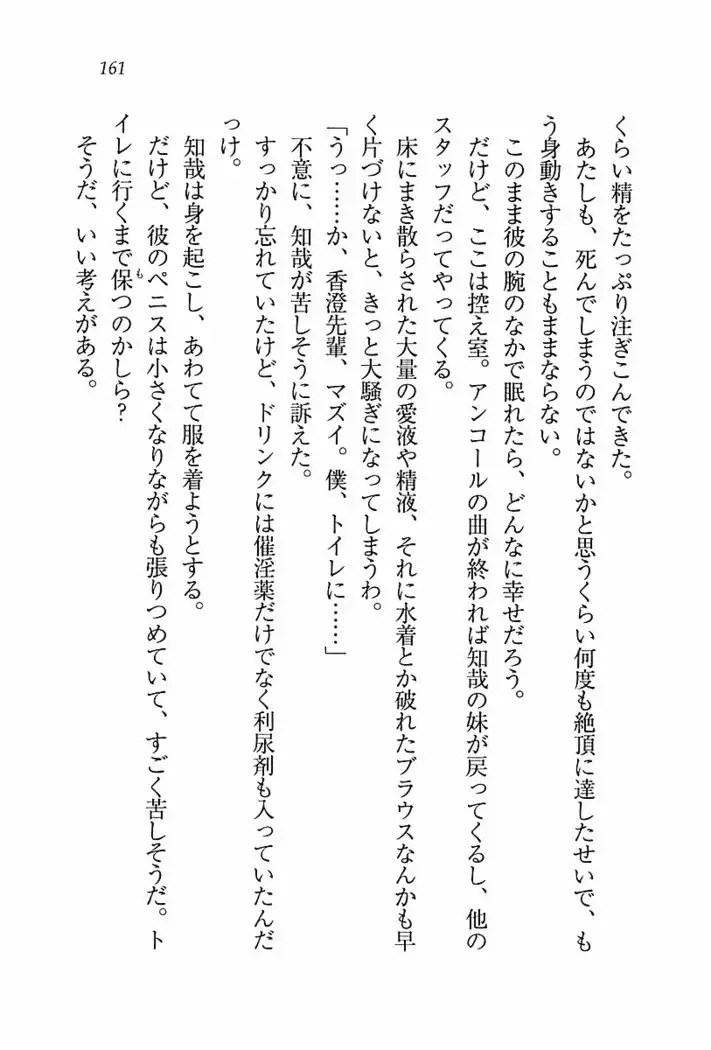 161
くらい精をたっぷり注ぎこんできた。
あたしも、死んでしまうのではないかと思うくらい何度も絶頂に達したせいで、も
う身動きすることもままならない。
このまま彼の腕のなかで眠れたら、どんなに幸せだろう。
だけど、ここは控え室。アンコールの曲が終われば知哉の妹が戻ってくるし、他の
スタッフだってやってくる。
床にまき散らされた大量の愛液や精液、それに水着とか破れたブラウスなんかも早
く片づけないと、きっと大騒ぎになってしまうわ。
「うっ……か、香澄先輩、マズイ。僕、トイレに……」
不意に、知哉が苦しそうに訴えた。
すっかり忘れていたけど、ドリンクには催淫薬だけでなく利尿剤も入っていたんだ
っけ。
知哉は身を起こし、あわてて服を着ようとする。
だけど、彼のペニスは小さくなりながらも張りつめていて、すごく苦しそうだ。ト
イレに行くまで保つのかしら？
も
そうだ、いい考えがある。